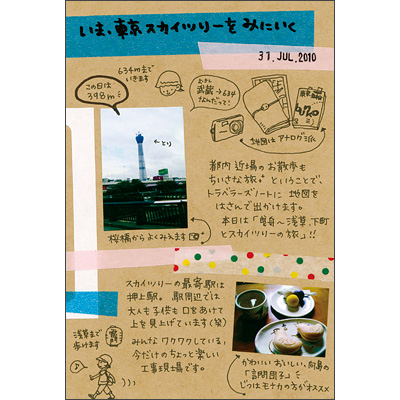 いま、東京スカイツリーを みにいく
31.JUL.2010
634mまで
いきます
この日は
398m
むかし
武蔵→634
なんだって!
地図はアナログ派
←とり
桜橋からよくみえます
都内近場のお散歩も
ちいさな旅。ということで、
トラベラーズノートに 地図を
はさんで出かけます。
本日は「隅田〜浅草、下町
とスカイツリーの旅」!!
スカイツリーの最寄駅は
押上駅。駅周辺では
大人も子供も口をあけて
上を見上げています(笑)
みんなワクワクしている、
今だけのちょっと楽しい
工事現場です。
浅草まで
歩けます
かわいい おいしい、向島の
「言問団子」を
じつはモナカの方がオススメ